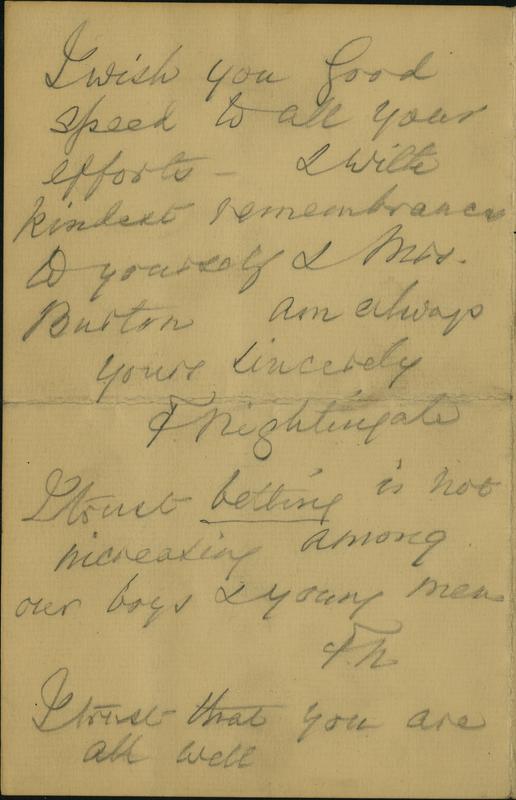 I wish you good
speed to all your
efforts - & with
kindest remembrances
to yourself & Mrs.
Burton am always
yours sincerely
F Nightingale
I trust betting is not
increasing among
our boys & young men
F.N
I trust that you are
all well